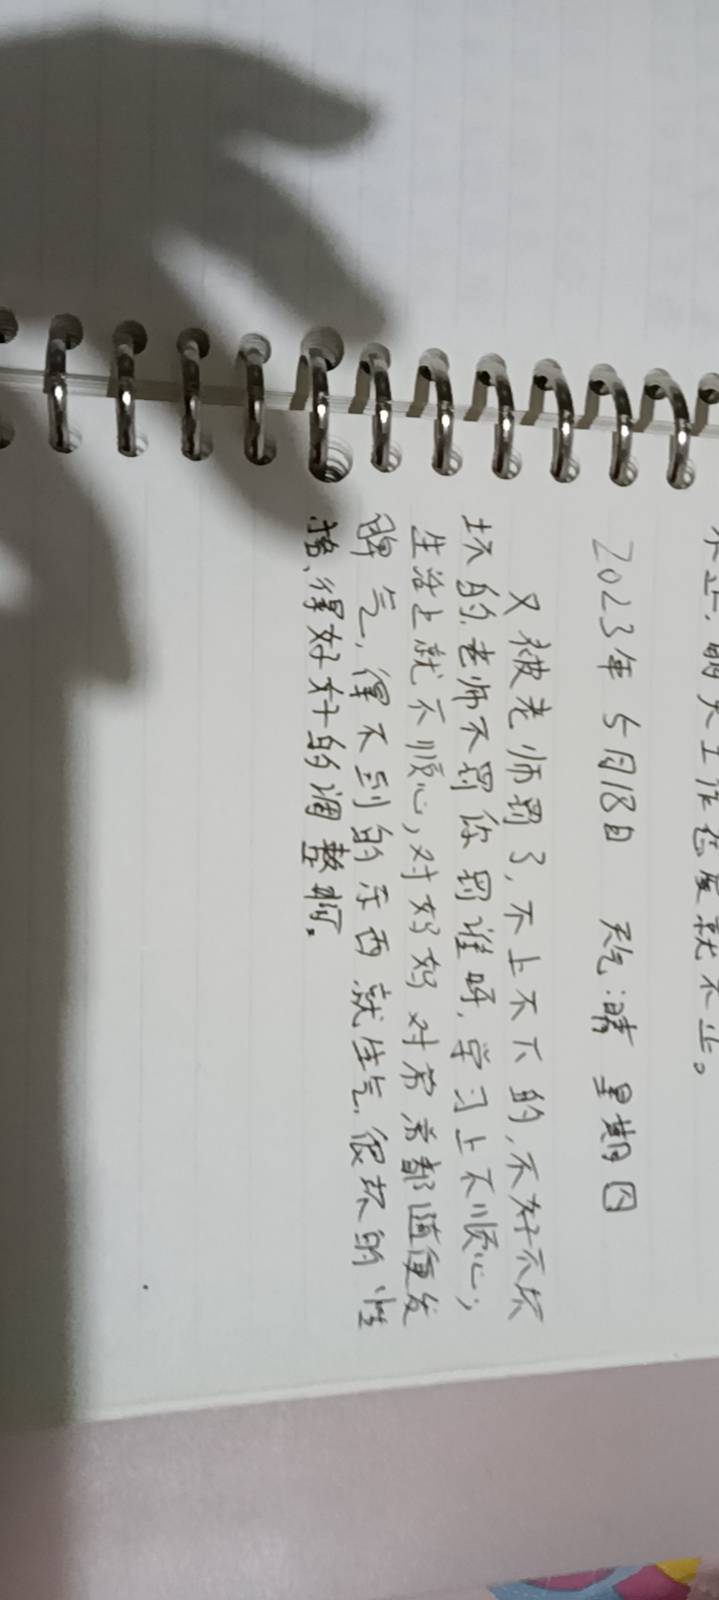 不止,明天工作也要就不止。
2023年5月18日 天气:晴 星期四
又被老师罚了,不上不下的,不好不坏
坏的,老师不罚你罚谁呀,学习上不顺心,
生活上就不顺心,对妈妈对爷爷都随便发
脾气,得不到的东西就生气,很坏的性
格、得好好的调整啊。